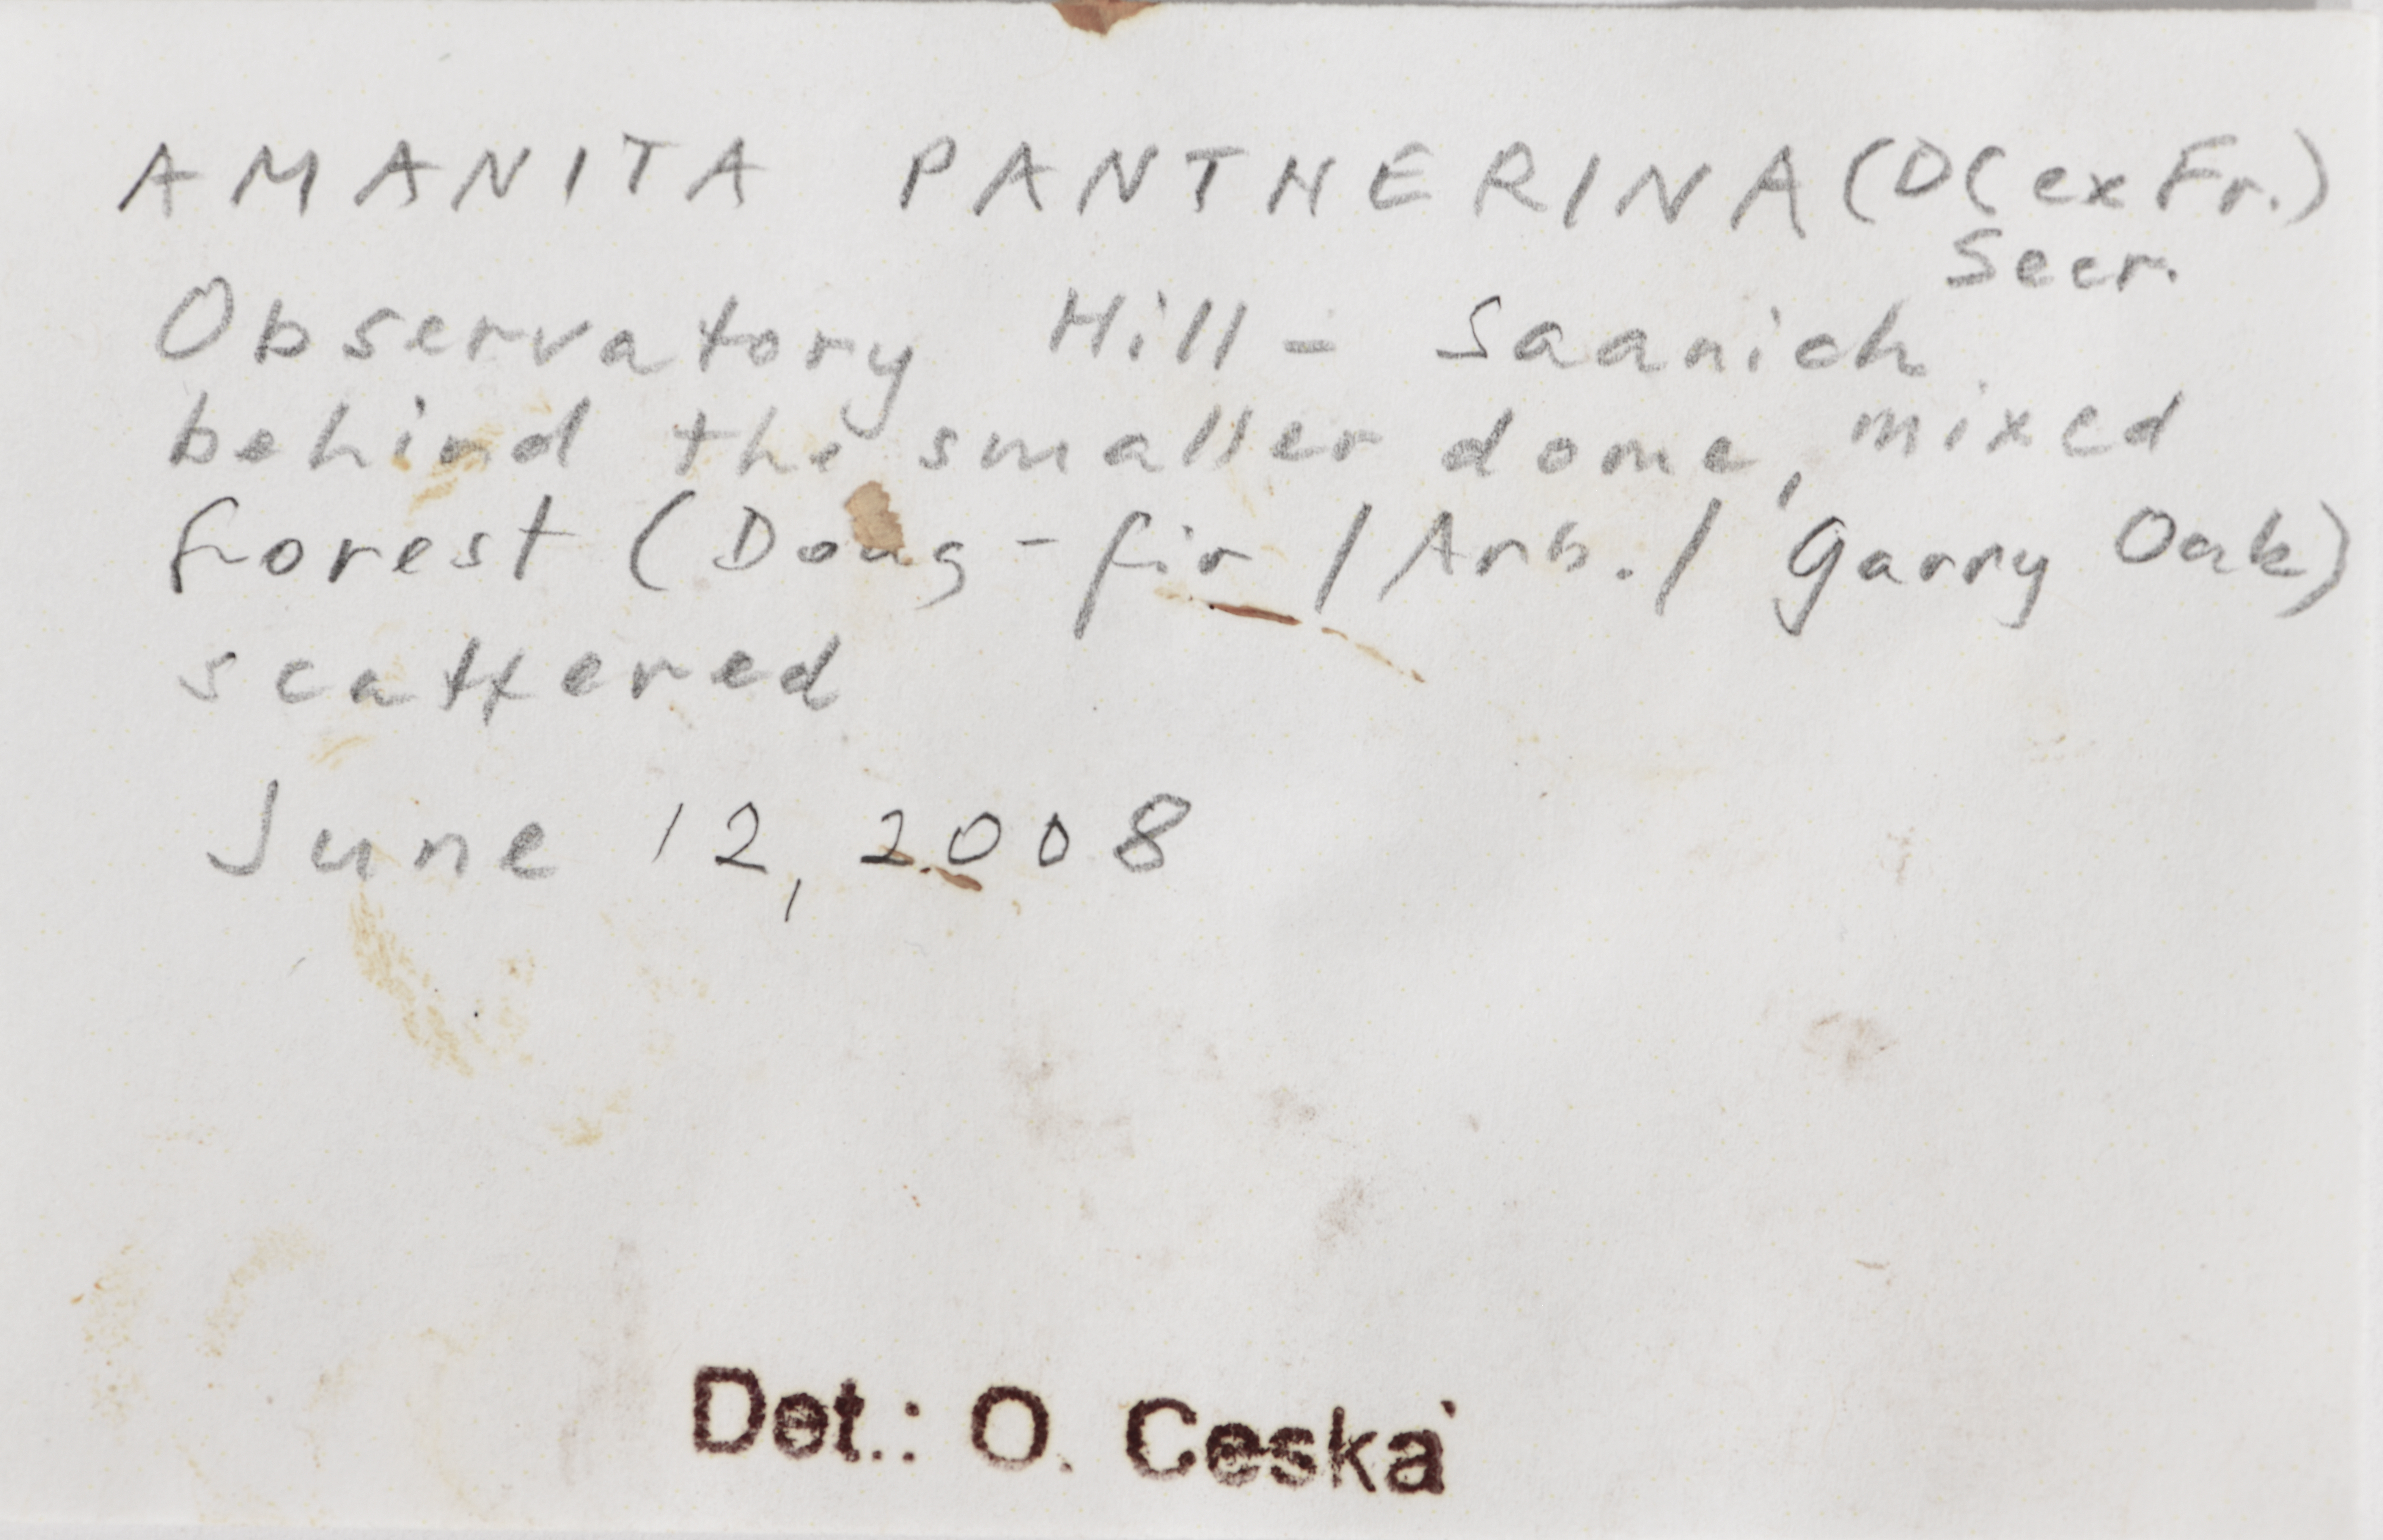 AMANITA PANTHERINA (DC ex Fr.)
Secr.
Observatory Hill - Saanich
behind the smaller dome, mixed
forest (Doug-fir / Arb. / Garry Oak)
scattered
June 12, 2008
Det.: O. Ceska